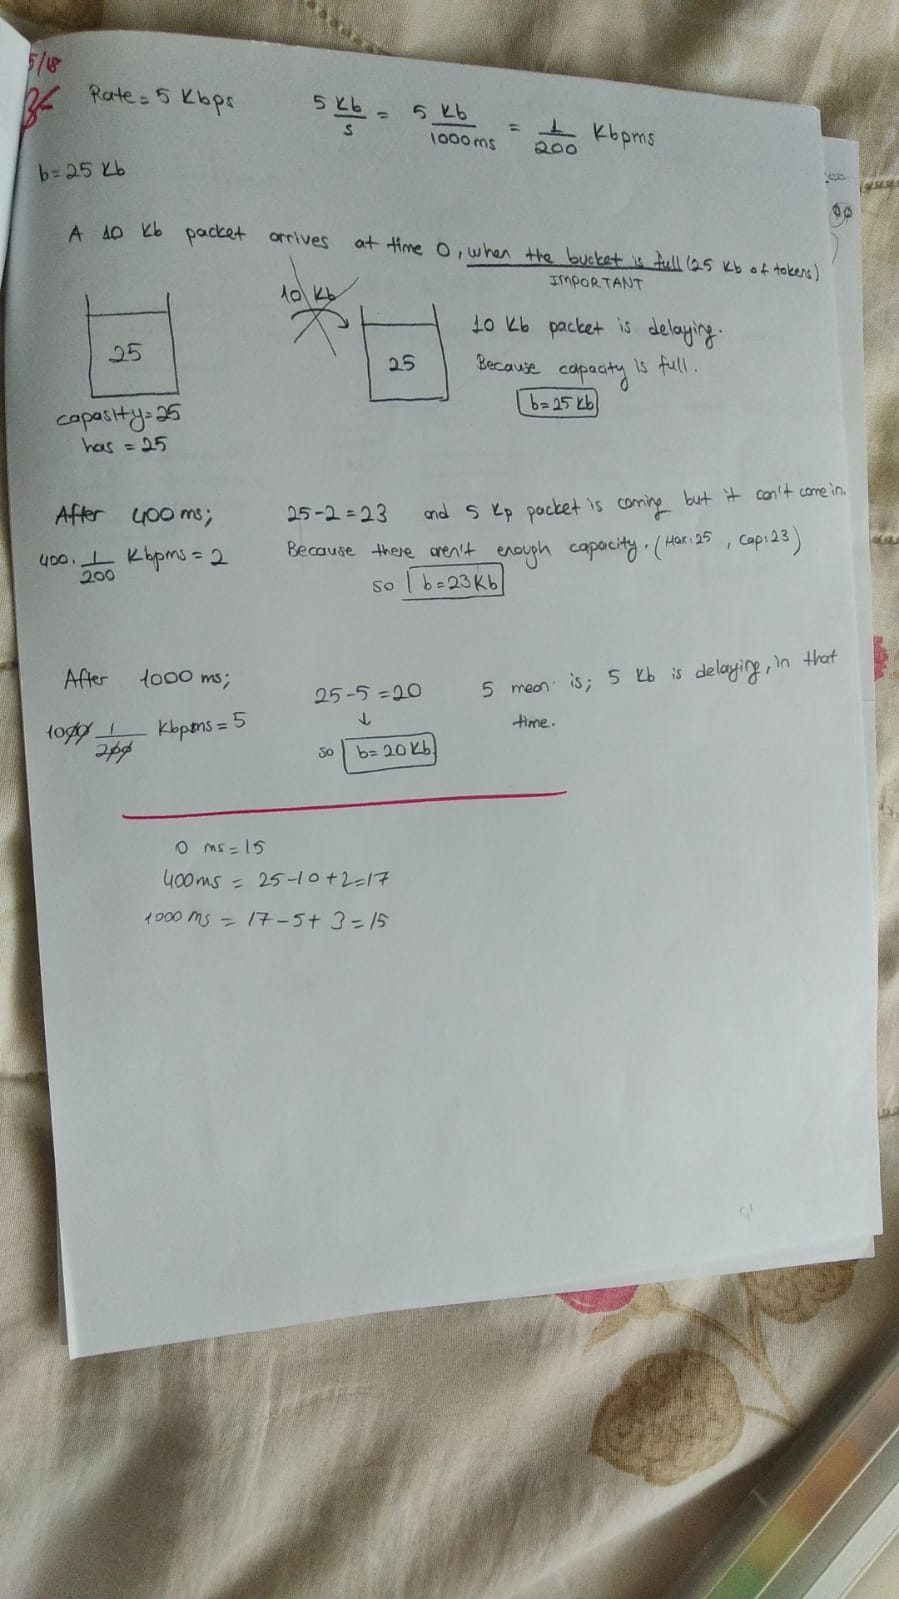 5/18
Rate = 5 Kbps
5 Kb/s = 5 Kb/1000ms = 1/200 Kbpms
b=25 Kb
A 10 Kb packet arrives at time 0, when the bucket is full (25 Kb of tokens)
IMPORTANT
25
capasity=25
has = 25
10 Kb
25
10 Kb packet is delaying.
Because capacity is full.
b=25 Kb
After 400 ms;
400. 1/200 Kbpms = 2
25-2=23 and 5 Kp packet is coming but it can't come in.
Because there aren't enough capacity. (Max:25 , Cap:23)
so b=23Kb
After 1000 ms;
1000 1/200 Kbpms = 5
25-5=20
↓
so b=20Kb
5 mean is; 5 Kb is delaying, in that
time.
0 ms=15
400ms = 25-10+2=17
1000 ms = 17-5+3=15